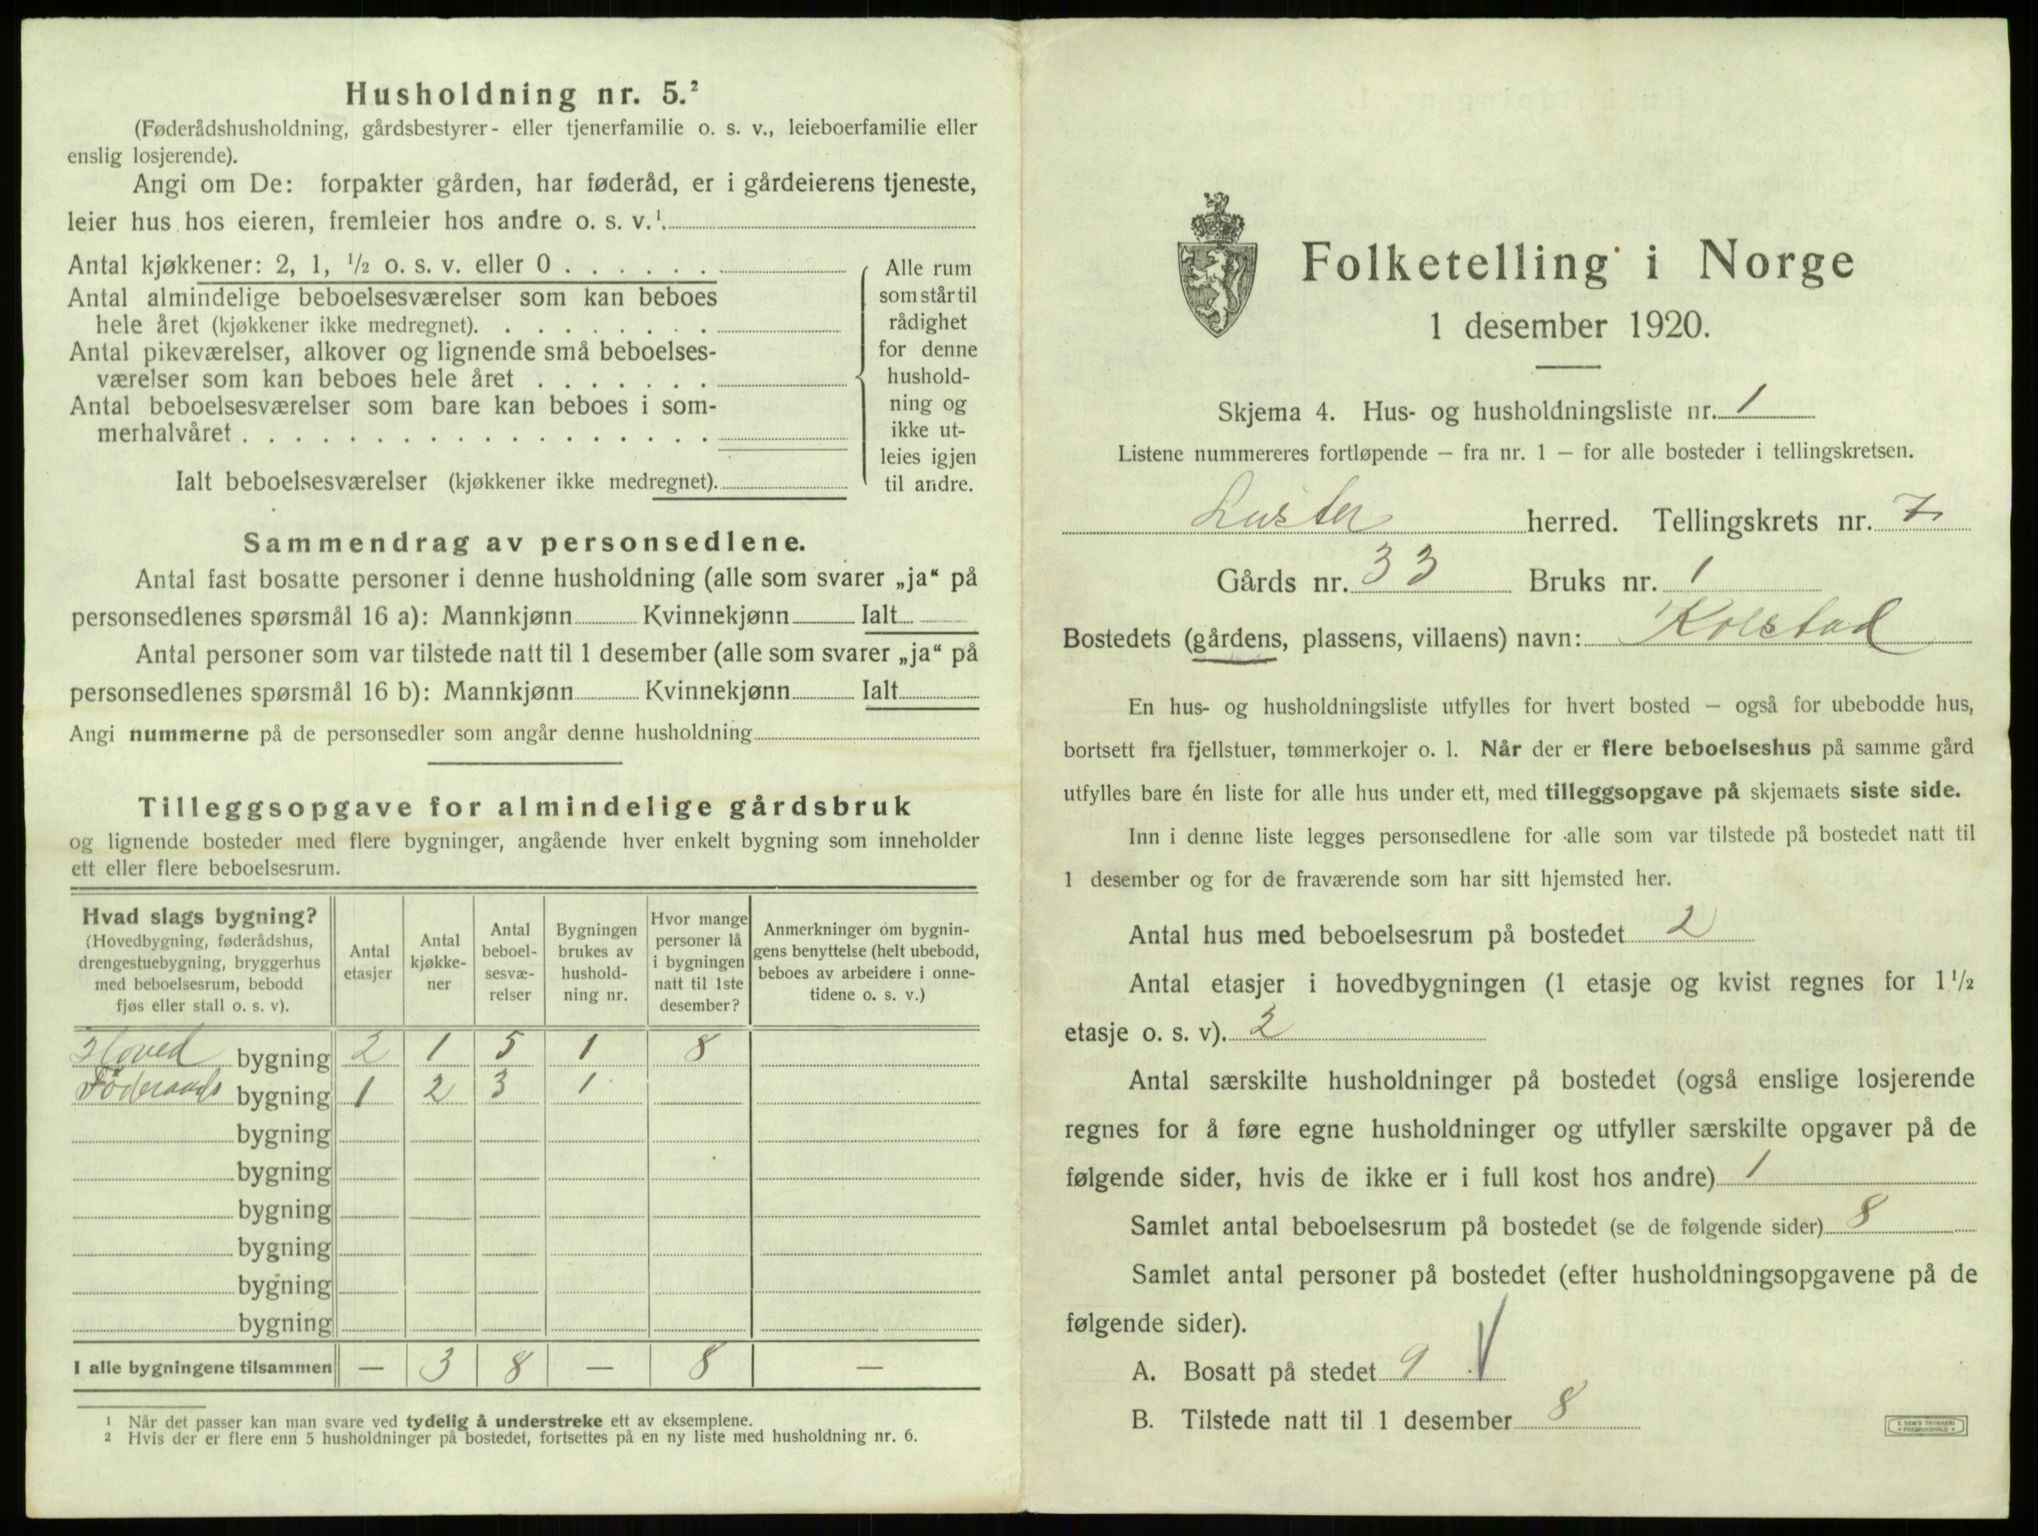 Husholdning nr. 5.²
(Føderådshusholdning, gårdsbestyrer- eller tjenerfamilie o. s. v., leieboerfamilie eller
enslig losjerende).
Angi om De: forpakter gården, har føderåd, er i gårdeierens tjeneste,
leier hus hos eieren, fremleier hos andre o. s. v.¹
Antal kjøkkener: 2, 1, ½ o. s. v. eller 0 . . . . . .
Antal almindelige beboelsesværelser som kan beboes
hele året (kjøkkener ikke medregnet). . . . . . . . .
Antal pikeværelser, alkover og lignende små beboelses-
værelser som kan beboes hele året . . . . . . .
Antal beboelsesværelser som bare kan beboes i som-
merhalvåret . . . . . . . . . . . . . . . . . .
Ialt beboelsesværelser (kjøkkener ikke medregnet).
Alle rum
som står til
rådighet
for denne
hushold-
ning og
ikke ut-
leies igjen
til andre.
Sammendrag av personsedlene.
Antal fast bosatte personer i denne husholdning (alle som svarer „ja“ på
personsedlenes spørsmål 16 a): Mannkjønn Kvinnekjønn Ialt
Antal personer som var tilstede natt til 1 desember (alle som svarer „ja“ på
personsedlenes spørsmål 16 b): Mannkjønn Kvinnekjønn Ialt
Angi nummerne på de personsedler som angår denne husholdning
Tilleggsopgave for almindelige gårdsbruk
og lignende bosteder med flere bygninger, angående hver enkelt bygning som inneholder
ett eller flere beboelsesrum.
Hvad slags bygning?
(Hovedbygning, føderådshus,
drengestuebygning, bryggerhus
med beboelsesrum, bebodd
fjøs eller stall o. s. v).
Antal
etasjer
Antal
kjøkke-
ner
Antal
beboel-
sesvæ-
relser
Bygningen
brukes av
hushold-
ning nr.
Hvor mange
personer lå
i bygningen
natt til 1ste
desember?
Anmerkninger om bygnin-
gens benyttelse (helt ubebodd,
beboes av arbeidere i onne-
tidene o. s. v.)
Hoved bygning 2 1 5 1 8
Føderaads bygning 1 2 3 1
bygning
bygning
bygning
bygning
bygning
bygning
I alle bygningene tilsammen — 3 8 — 8 —
¹ Når det passer kan man svare ved tydelig å understreke ett av eksemplene.
² Hvis der er flere enn 5 husholdninger på bostedet, fortsettes på en ny liste med husholdning nr. 6.
Folketelling i Norge
1 desember 1920.
Skjema 4. Hus- og husholdningsliste nr. 1
Listene nummereres fortløpende — fra nr. 1 — for alle bosteder i tellingskretsen.
Luster herred. Tellingskrets nr. 7
Gårds nr. 33 Bruks nr. 1
Bostedets (gårdens, plassens, villaens) navn: Kolstad
En hus- og husholdningsliste utfylles for hvert bosted — også for ubebodde hus,
bortsett fra fjellstuer, tømmerkojer o. l. Når der er flere beboelseshus på samme gård
utfylles bare én liste for alle hus under ett, med tilleggsopgave på skjemaets siste side.
Inn i denne liste legges personsedlene for alle som var tilstede på bostedet natt til
1 desember og for de fraværende som har sitt hjemsted her.
Antal hus med beboelsesrum på bostedet 2
Antal etasjer i hovedbygningen (1 etasje og kvist regnes for 1½
etasje o. s. v). 2
Antal særskilte husholdninger på bostedet (også enslige losjerende
regnes for å føre egne husholdninger og utfyller særskilte opgaver på de
følgende sider, hvis de ikke er i full kost hos andre) 1
Samlet antal beboelsesrum på bostedet (se de følgende sider) 8
Samlet antal personer på bostedet (efter husholdningsopgavene på de
følgende sider).
A. Bosatt på stedet 9 V
B. Tilstede natt til 1 desember 8
E. SEM'S TRYKKERI
FREDRIKSHALD